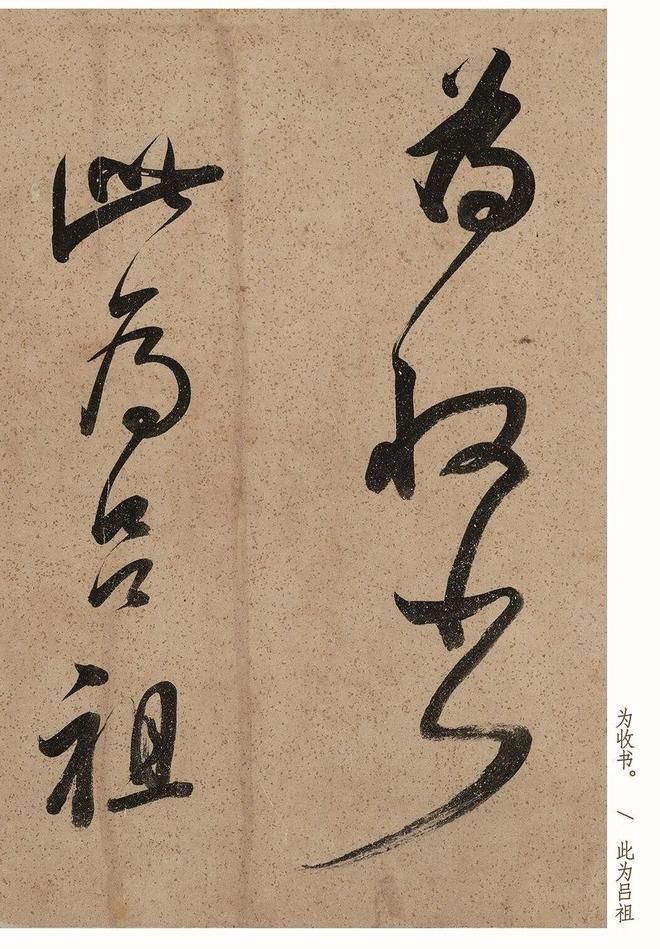 為收書
此為呂祖
为收书。 / 此为吕祖